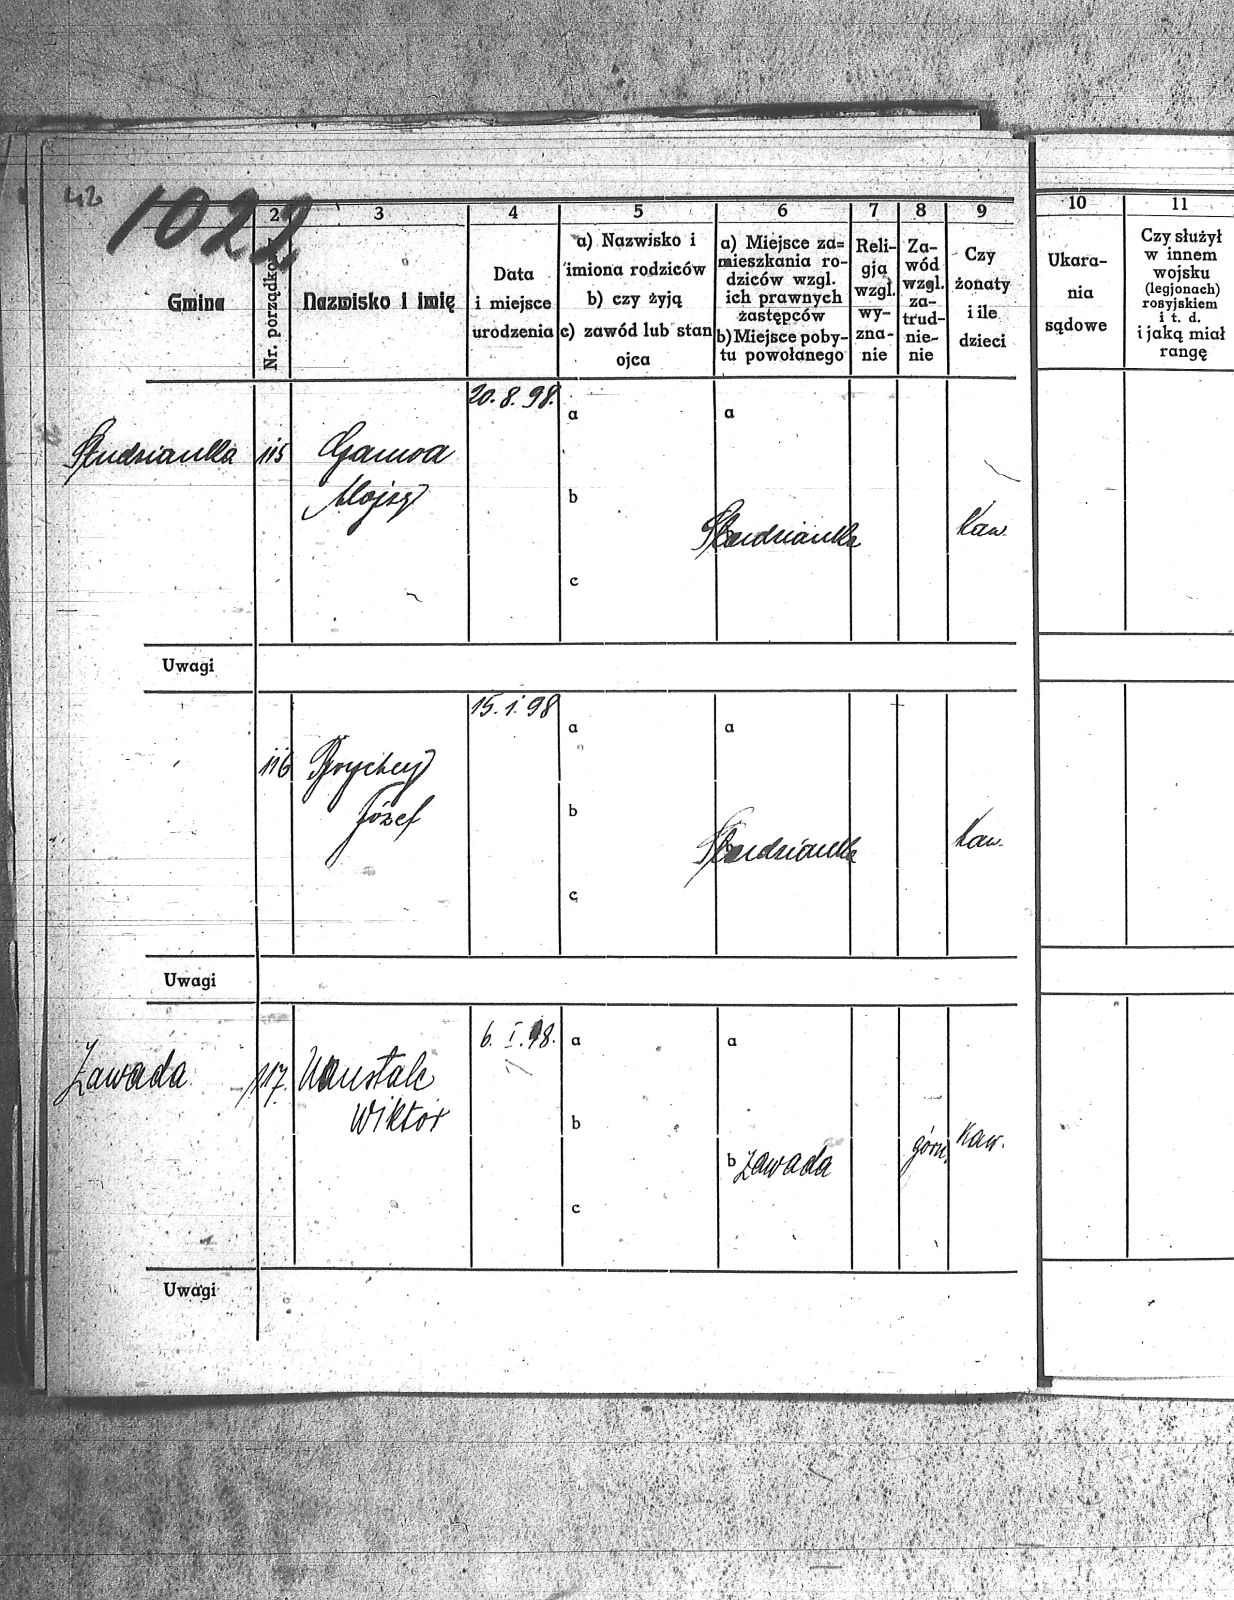 42
1022
2
3
4
5
6
7
8
9
10
11
Gmina
Nr. porządkow.
Nazwisko i imię
Data
i miejsce
urodzenia
a) Nazwisko i
imiona rodziców
b) czy żyją
c) zawód lub stan
ojca
a) Miejsce za=
mieszkania ro-
dziców wzgl.
ich prawnych
zastępców
b) Miejsce poby-
tu powołanego
Reli-
gja
wzgl.
wy-
zna-
nie
Za-
wód
wzgl.
za-
trud-
nie-
nie
Czy
żonaty
i ile
dzieci
Ukara-
nia
sądowe
Czy służył
w innem
wojsku
(legjonach)
rosyjskiem
i t. d.
i jaką miał
rangę
20.8.98.
a
a
Studzianka
115
Gamoa
Alojzy
b
Studzianka
Kaw.
c
Uwagi
15.1.98
a
a
116
Brychcy
Józef
b
Studzianka
Kaw.
c
Uwagi
6. I. 98.
a
a
Zawada
117.
Wiktor
b
b Zawada
górn.
Kaw.
c
Uwagi